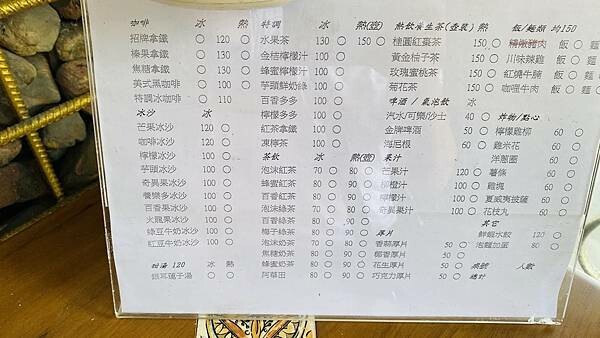 咖啡 冰 熱
招牌拿鐵 ○ 120 ○
榛果拿鐵 ○ 130 ○
焦糖拿鐵 ○ 130 ○
美式黑咖啡 ○ 100 ○
特調冰咖啡 ○ 110
冰沙 冰
芒果冰沙 120 ○
咖啡冰沙 120 ○
檸檬冰沙 100 ○
芋頭冰沙 100 ○
奇異果冰沙 100 ○
養樂多冰沙 100 ○
百香果冰沙 100 ○
火龍果冰沙 100 ○
綠豆牛奶冰沙 100 ○
紅豆牛奶冰沙 100 ○
甜湯 120 冰 熱
銀耳蓮子湯 ○ ○
特調 冰 熱(壺)
水果茶 130 ○ 150 ○
金桔檸檬汁 100 ○
蜂蜜檸檬汁 100 ○
芋頭鮮奶綠 100 ○
百香多多 100 ○
檸檬多多 100 ○
紅茶拿鐵 100 ○
凍檸茶 100 ○
茶飲 冰 熱(壺)
泡沫紅茶 70 ○ 80 ○
蜂蜜紅茶 80 ○ 90 ○
百香紅茶 80 ○ 90 ○
泡沫綠茶 70 ○ 80 ○
百香綠茶 80 ○ 90 ○
梅子綠茶 80 ○ 90 ○
泡沫奶茶 70 ○ 80 ○
焦糖奶茶 80 ○ 90 ○
蜂蜜奶茶 80 ○ 90 ○
阿華田 80 ○ 90 ○
熱飲養生茶(壺裝) 熱
桂圓紅棗茶 150 ○
黃金柚子茶 150 ○
玫瑰蜜桃茶 150 ○
菊花茶 150 ○
啤酒/氣泡飲 冰
汽水/可樂/沙士 40 ○
金牌啤酒 50 ○
海尼根 60 ○
果汁
芒果汁 120 ○
柳橙汁 100 ○
檸檬汁 100 ○
奇異果汁 100 ○
厚片
香蒜厚片 50 ○
椰香厚片 50 ○
花生厚片 50 ○
巧克力厚片 50 ○
飯/麵類 均150
飯 ○ 麵
川味辣雞 飯 ○ 麵
紅燒牛腩 飯 ○ 麵
咖哩牛肉 飯 ○ 麵
炸物/點心
檸檬雞柳 60 ○
雞米花 60 ○
洋蔥圈 60 ○
薯條 60 ○
雞塊 60 ○
夏威夷披薩 60 ○
花枝丸 60 ○
其它
鮮蝦水餃 120 ○
泡麵加蛋 80 ○
桌號 人數
總計